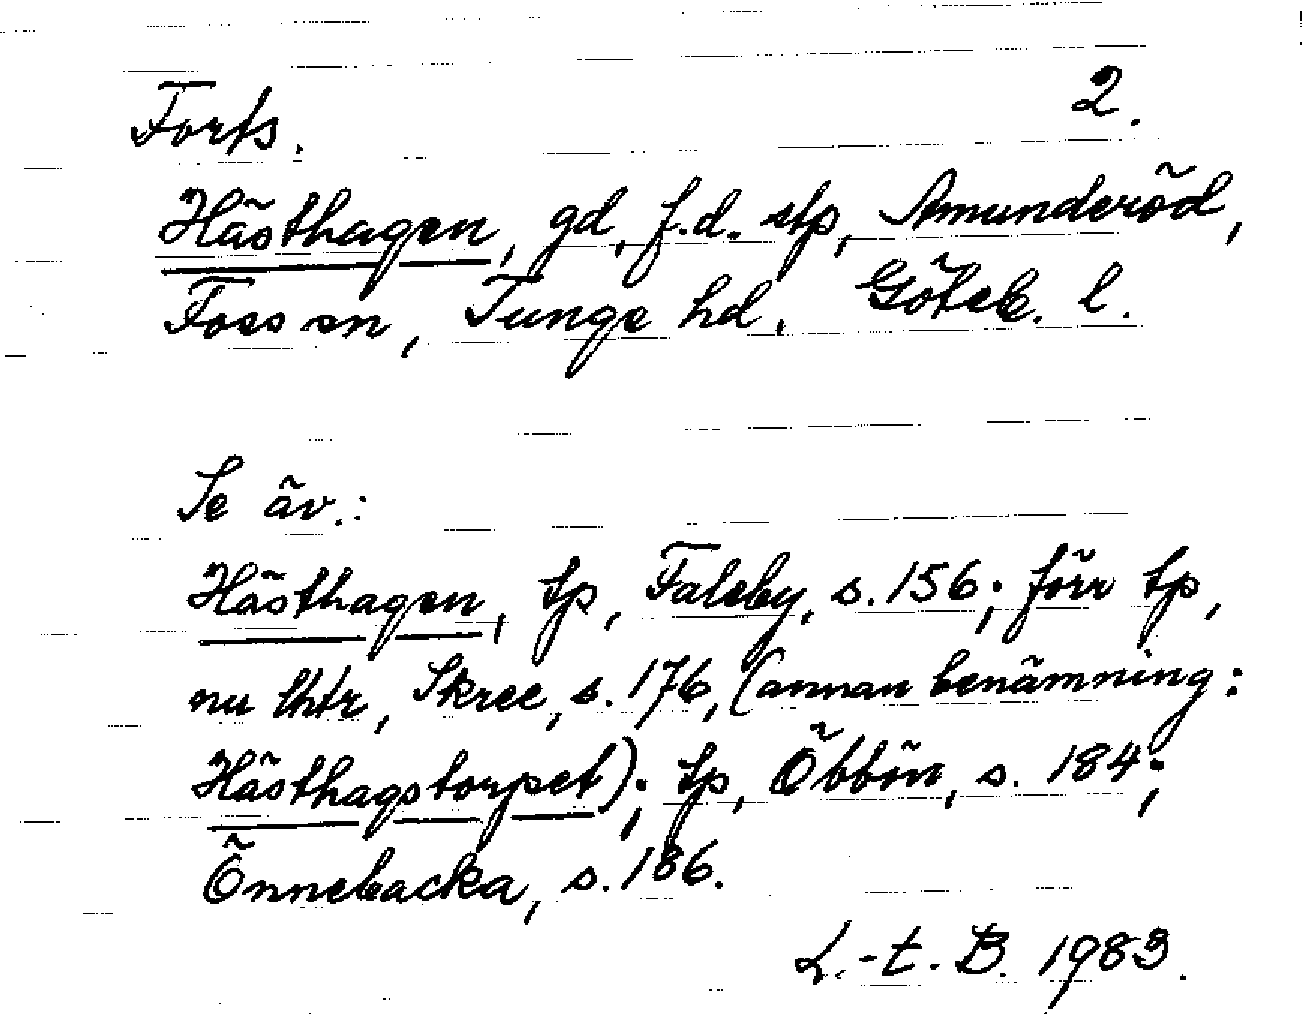 Forts. 2.
Hästhagen, gd, f.d. stp, Amunderöd,
Foss sn, Tunge hd, Göteb. l.
Se äv.:
Hästhagen, tp, Faleby, s. 156; förr tp,
nu lht, Skree, s. 176, (annan benämning:
Hästhagstorpet); tp, Öbbön, s. 184;
Önnebacka, s. 186.
L.-t. B. 1983.